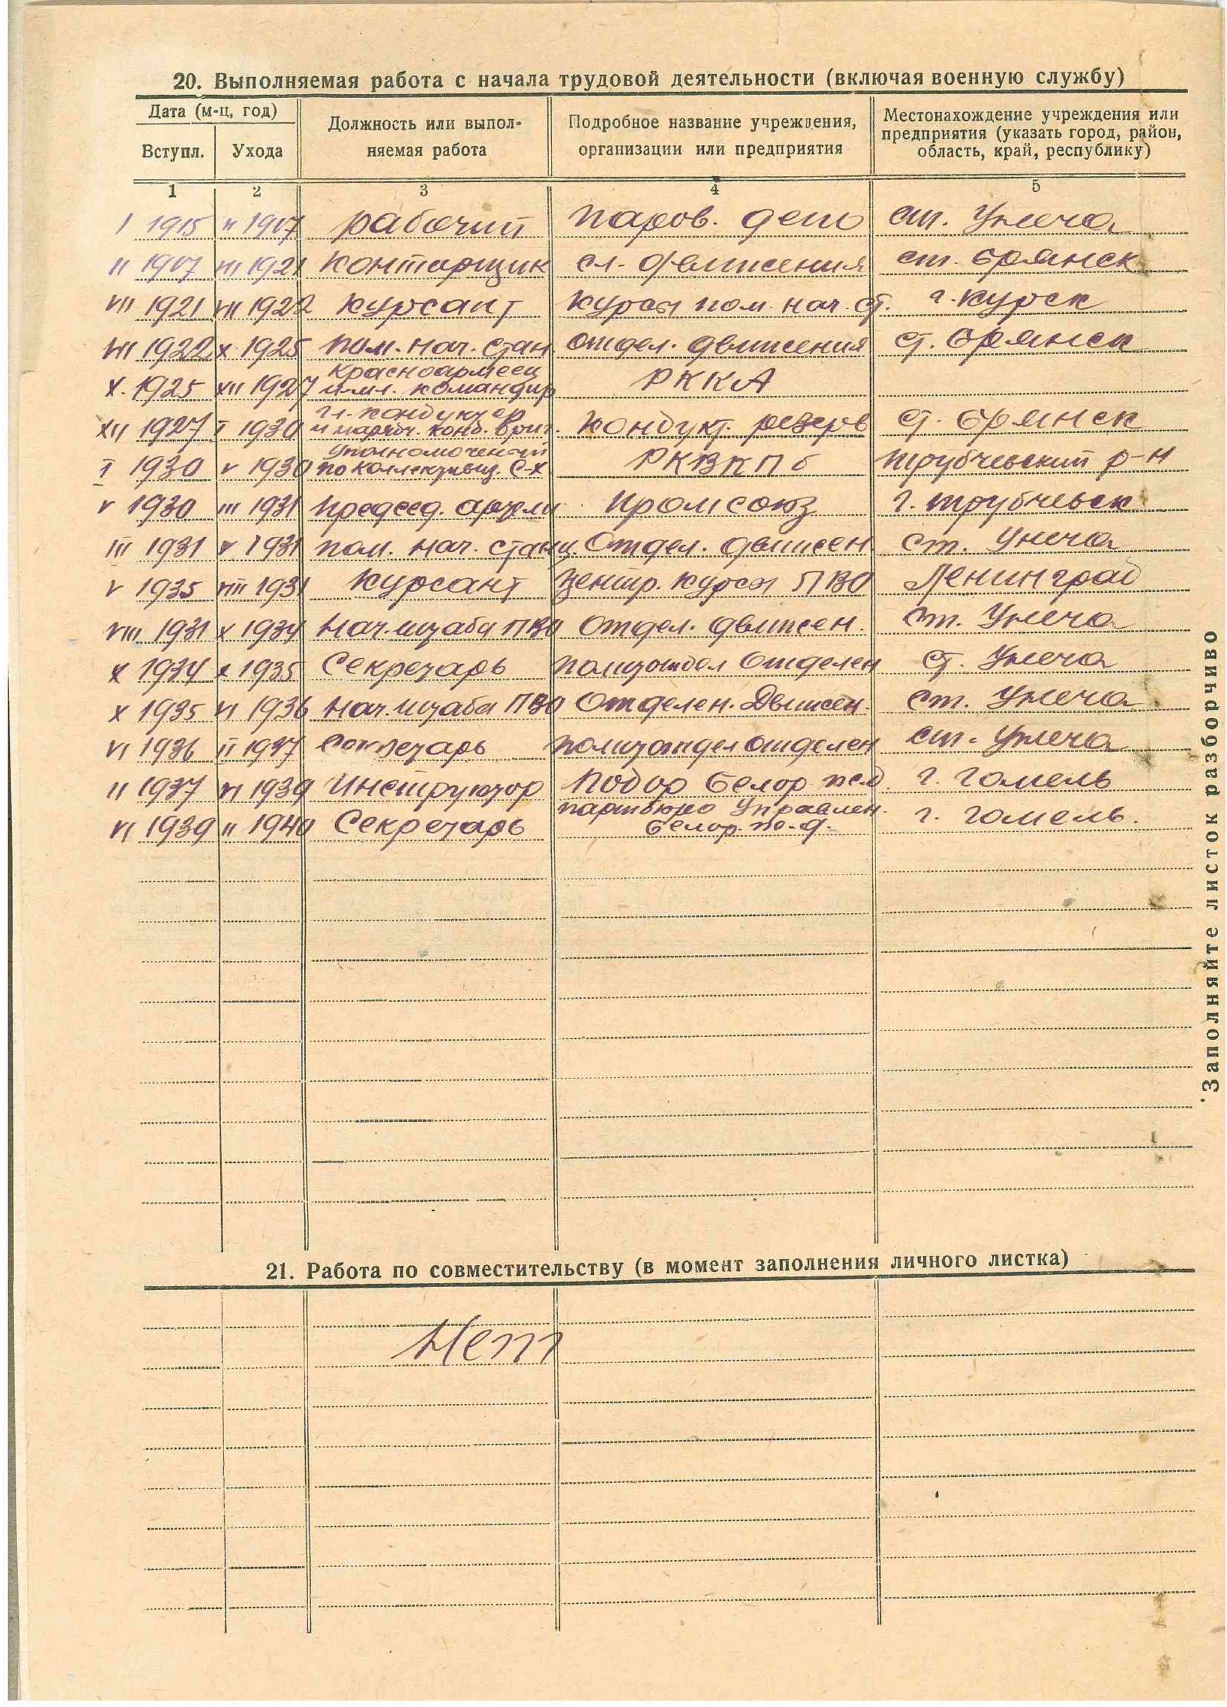 20. Выполняемая работа с начала трудовой деятельности (включая военную службу)
Дата (м-ц, год)
Вступл. Ухода
Должность или выпол-
няемая работа
Подробное название учреждения,
организации или предприятия
Местонахождение учреждения или
предприятия (указать город, район,
область, край, республику)
1 2 3 4 5
I 1915 II 1917 рабочий паров. депо ст. Унеча
II 1917 VII 1921 Конторщик сл. движения ст. Брянск
VII 1921 VII 1922 Курсант Курсы пом. нач. ст. г. Курск
VII 1922 X 1925 пом. нач. стан. отдел. движения ст. Брянск
X 1925 XII 1927 Красноармеец и мл. командир РККА
XII 1927 I 1930 гл. кондуктер Кондукт. резерв ст. Брянск
I 1930 V 1930 уполномоченный по коллективиз. С-Х РКВКПб Трубчевский р-н
V 1930 III 1931 председ. артели Промсоюз г. Трубчевск
III 1931 V 1931 пом. нач. станц. Отдел. движен. ст. Унеча
V 1935 VIII 1931 Курсант Центр. Курсы ПВО Ленинград
VIII 1931 X 1934 Нач. штаба ПВО Отдел. движен. ст. Унеча
X 1934 X 1935 Секретарь политотдел Отделен ст. Унеча
X 1935 VI 1936 Нач. штаба ПВО Отделен. Движен. ст. Унеча
VI 1936 II 1937 Секретарь политотдел отделен ст. Унеча
II 1937 VI 1939 Инструктор Подор Белор. жел. г. Гомель
VI 1939 II 1940 Секретарь партбюро Управлен. Белор. ж.-д. г. Гомель.
21. Работа по совместительству (в момент заполнения личного листка)
Нет
Заполняйте листок разборчиво